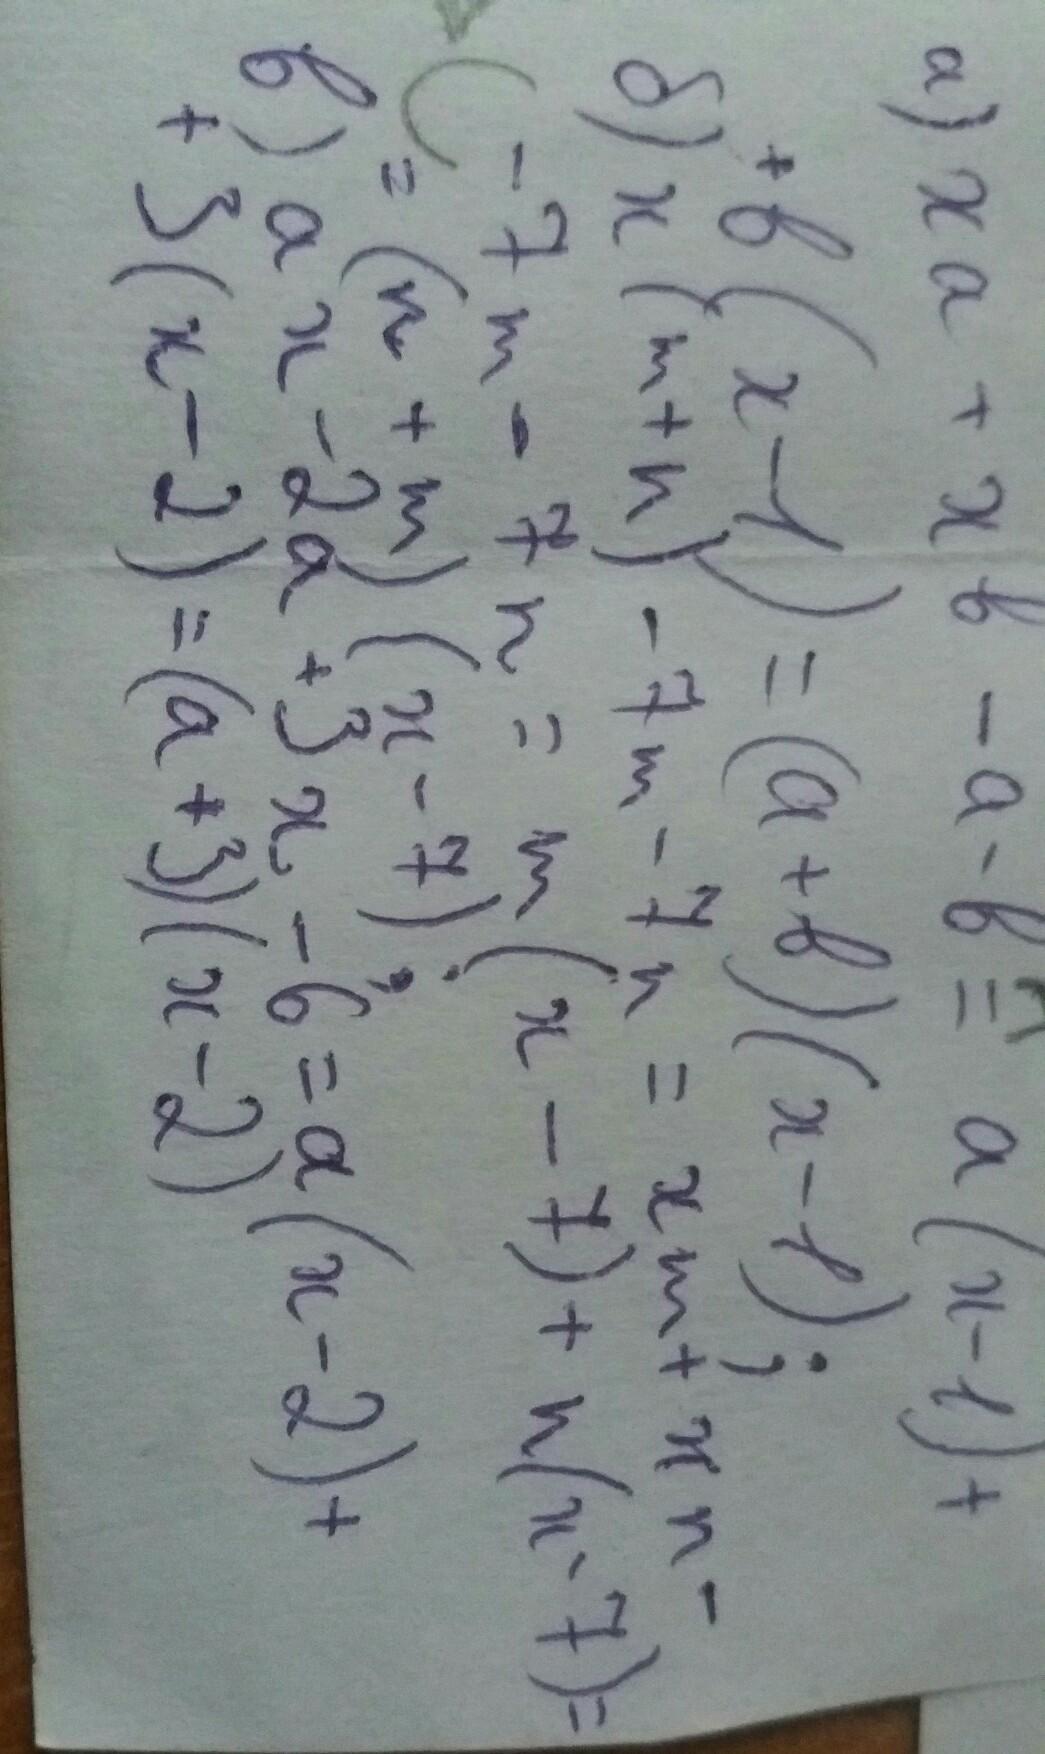 а) xa + xb - a - b = a(x-1) +
+ b(x-1) = (a+b)(x-1);
б) x(m+n) - 7m - 7n = xm + xn -
- 7m - 7n = m(x-7) + n(x-7) =
= (n+m)(x-7);
в) ax - 2a + 3x - 6 = a(x-2) +
+ 3(x-2) = (a+3)(x-2)